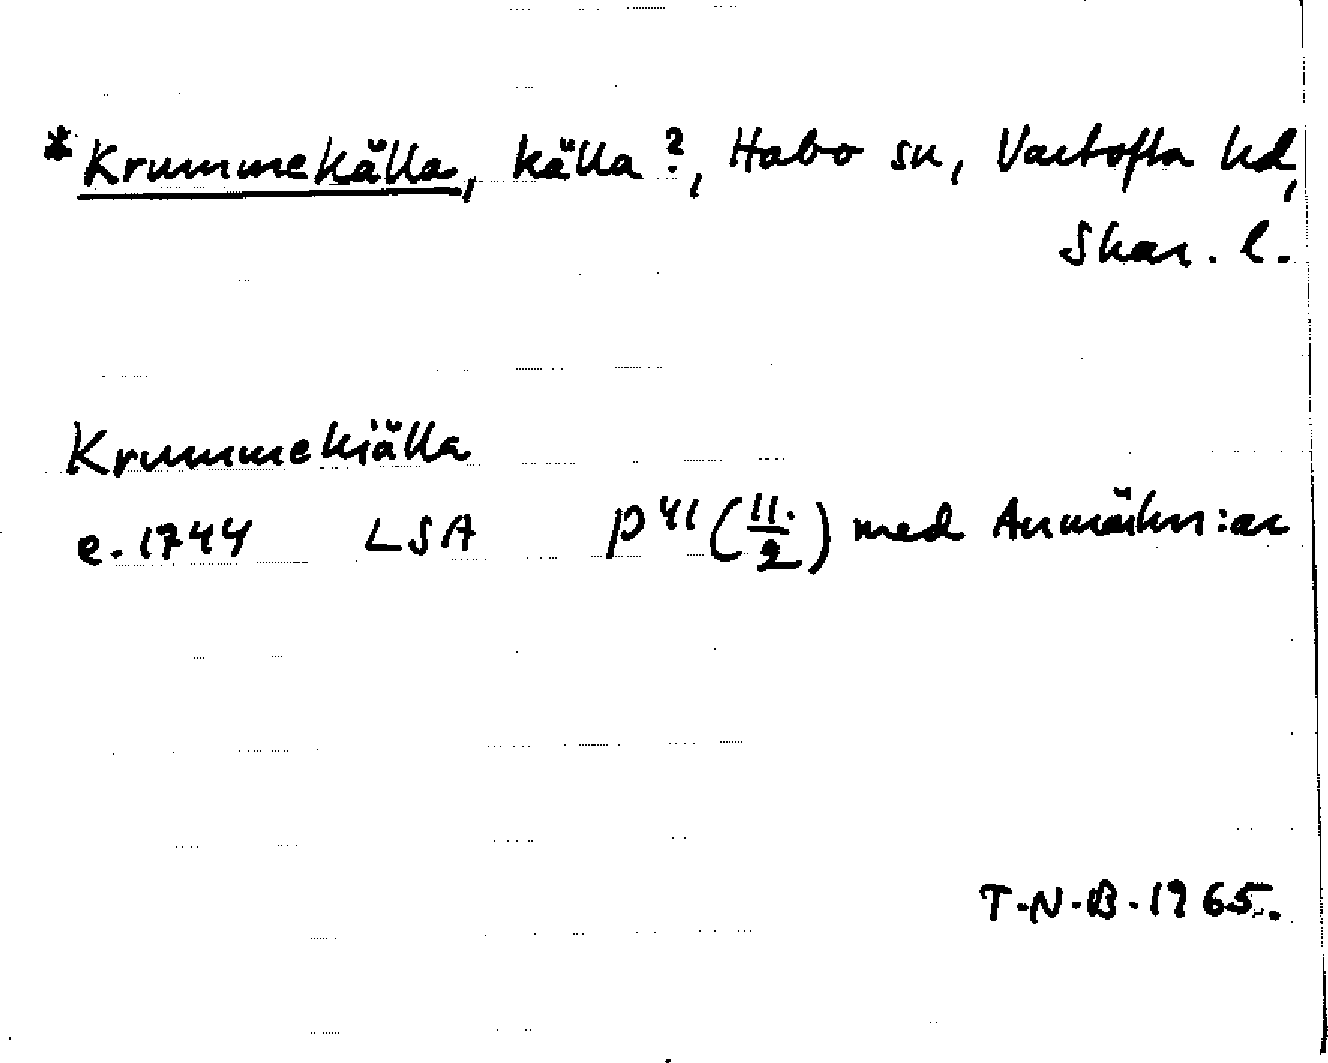 *Krummekälla, källa?, Habo sn, Vartofta hd,
Skar. l.
Krummekiälla
e. 1744 LSA P41 (11./2) med Anmärkn:ar
T.N.B. 1965.